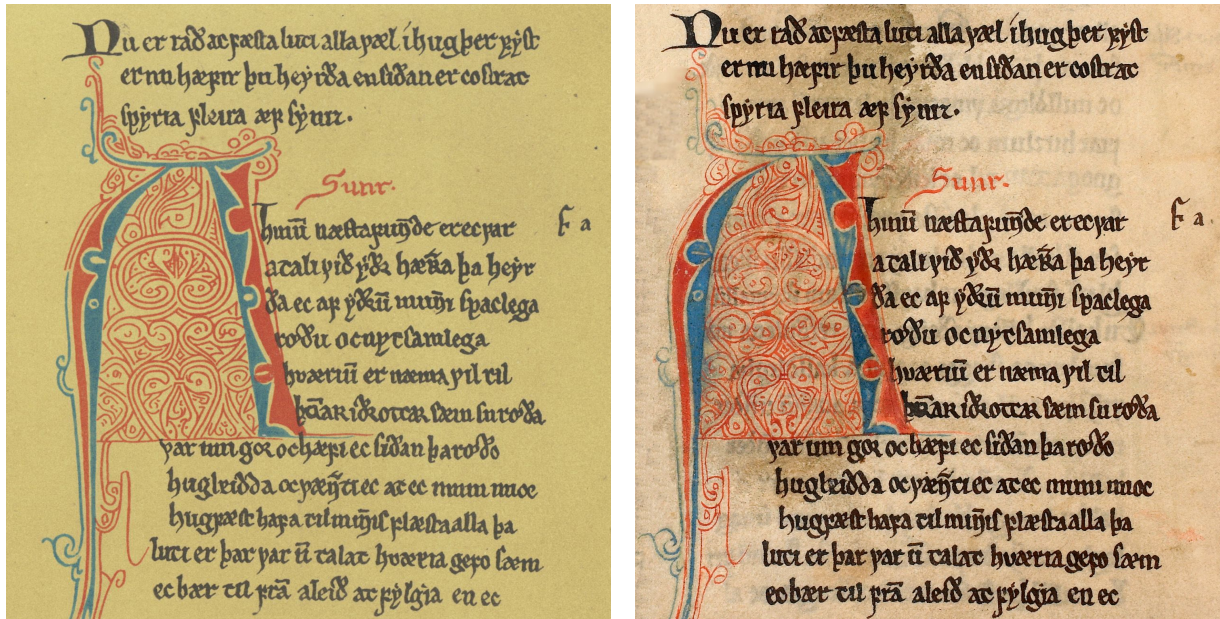 Nu er rað at fæsta luti alla væl i hug þer
er nu hæfir þu heyrða en siðan er costr at
spyria fleira æf synir.
Sunr.
næsta er ec var
a tali við yðr hærra þa heyr
ða ec af yðrum munni spaclega
roðu oc nytsamlega
hværium er næma vil til
iðrottar sæm su roða
var um gor oc hæfi ec siðan þa roðo
hugleidda oc vænti ec at ec muni mioc
hugfæst hafa til minnis flæsta alla þa
luti er þar var um talat hværia gero sæm
ec bær til fra a leið at fylgia en ec
Nu er rað at fæsta luti alla væl i hug þer
er nu hæfir þu heyrða en siðan er costr at
spyria fleira æf synir.
Sunr.
næsta er ec var
a tali við yðr hærra þa heyr
ða ec af yðrum munni spaclega
roðu oc nytsamlega
hværium er næma vil til
iðrottar sæm su roða
var um gor oc hæfi ec siðan þa roðo
hugleidda oc vænti ec at ec muni mioc
hugfæst hafa til minnis flæsta alla þa
luti er þar var um talat hværia gero sæm
ec bær til fra a leið at fylgia en ec